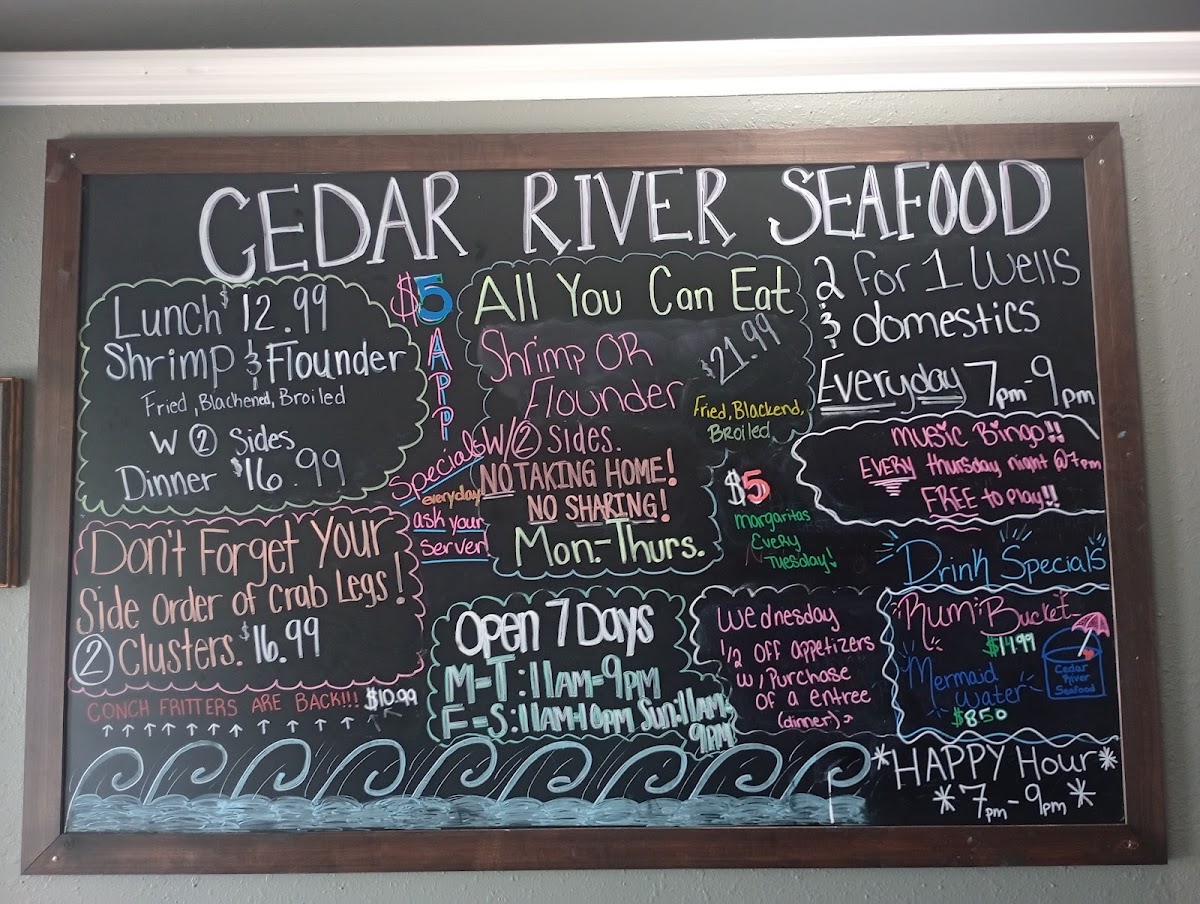 CEDAR RIVER SEAFOOD
Lunch $12.99
Shrimp & Flounder
Fried, Blackened, Broiled
W ② Sides
Dinner $16.99
$5
APP
Specials
everyday!
ask your
server!
All You Can Eat
Shrimp OR
Flounder
$21.99
W/② Sides.
Fried, Blackend,
Broiled
NO TAKING HOME!
NO SHARING!
Mon.-Thurs.
$5
Margaritas
Every
Tuesday!
2 for 1 Wells
& domestics
Everyday 7pm-9pm
Music Bingo!!
EVERY thursday night @7pm
FREE to play!!
Don't Forget Your
Side order of Crab Legs!
② Clusters. $16.99
CONCH FRITTERS ARE BACK!!! $10.99
Open 7 Days
M-T: 11AM-9PM
F-S: 11AM-10PM Sun: 11AM-
9PM
Wednesday
1/2 OFF Appetizers
w/ Purchase
of a entree
(dinner)
Drink Specials
Rum Bucket
$14.99
Mermaid
Water
$8.50
Cedar
River
Seafood
*HAPPY Hour*
*7pm-9pm*